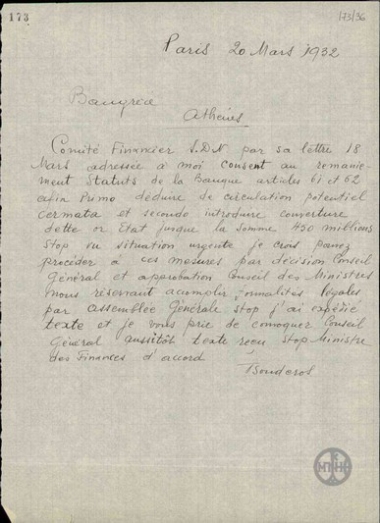 173
173/36
Paris 20 Mars 1932
Bangréa
Athènes
Comité Financier S.D.N par sa lettre 18
Mars adressée à moi consent au remanie-
ment Statuts de la Banque articles 61 et 62
afin Primo déduire de circulation potentiel
cermata et secundo introduire couverture
dette or Etat jusque la somme 450 millions
Stop vu situation urgente je crois pouvez
procéder à ces mesures par décision Conseil
Général et approbation Conseil des Ministres
nous réservant acomplir formalités légales
par assemblée Générale stop j'ai expédié
texte et je vous prie de convoquer Conseil
Général aussitôt texte recu stop Ministre
des Finances d'accord
Tsouderos